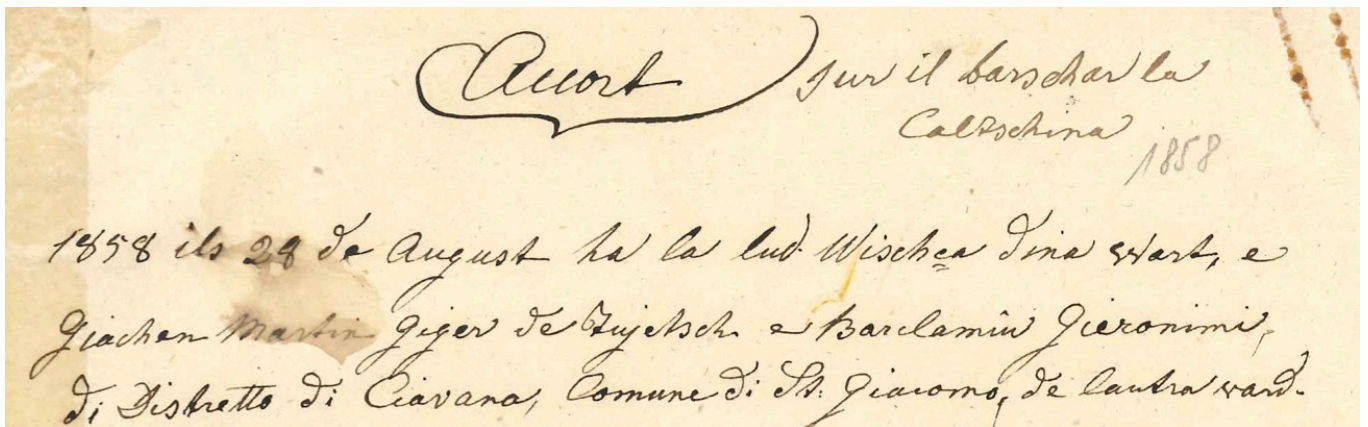 Accort sur il barschar la
Caltschina
1858
1858 ils 28 de August ha la lud. Wischca dina wart, e
Giachen Martin Giger de Tujetsch e Barclamiu Gieronimi,
di Distretto di Ciavana, Comune di St. Giacomo, de lautra ward.